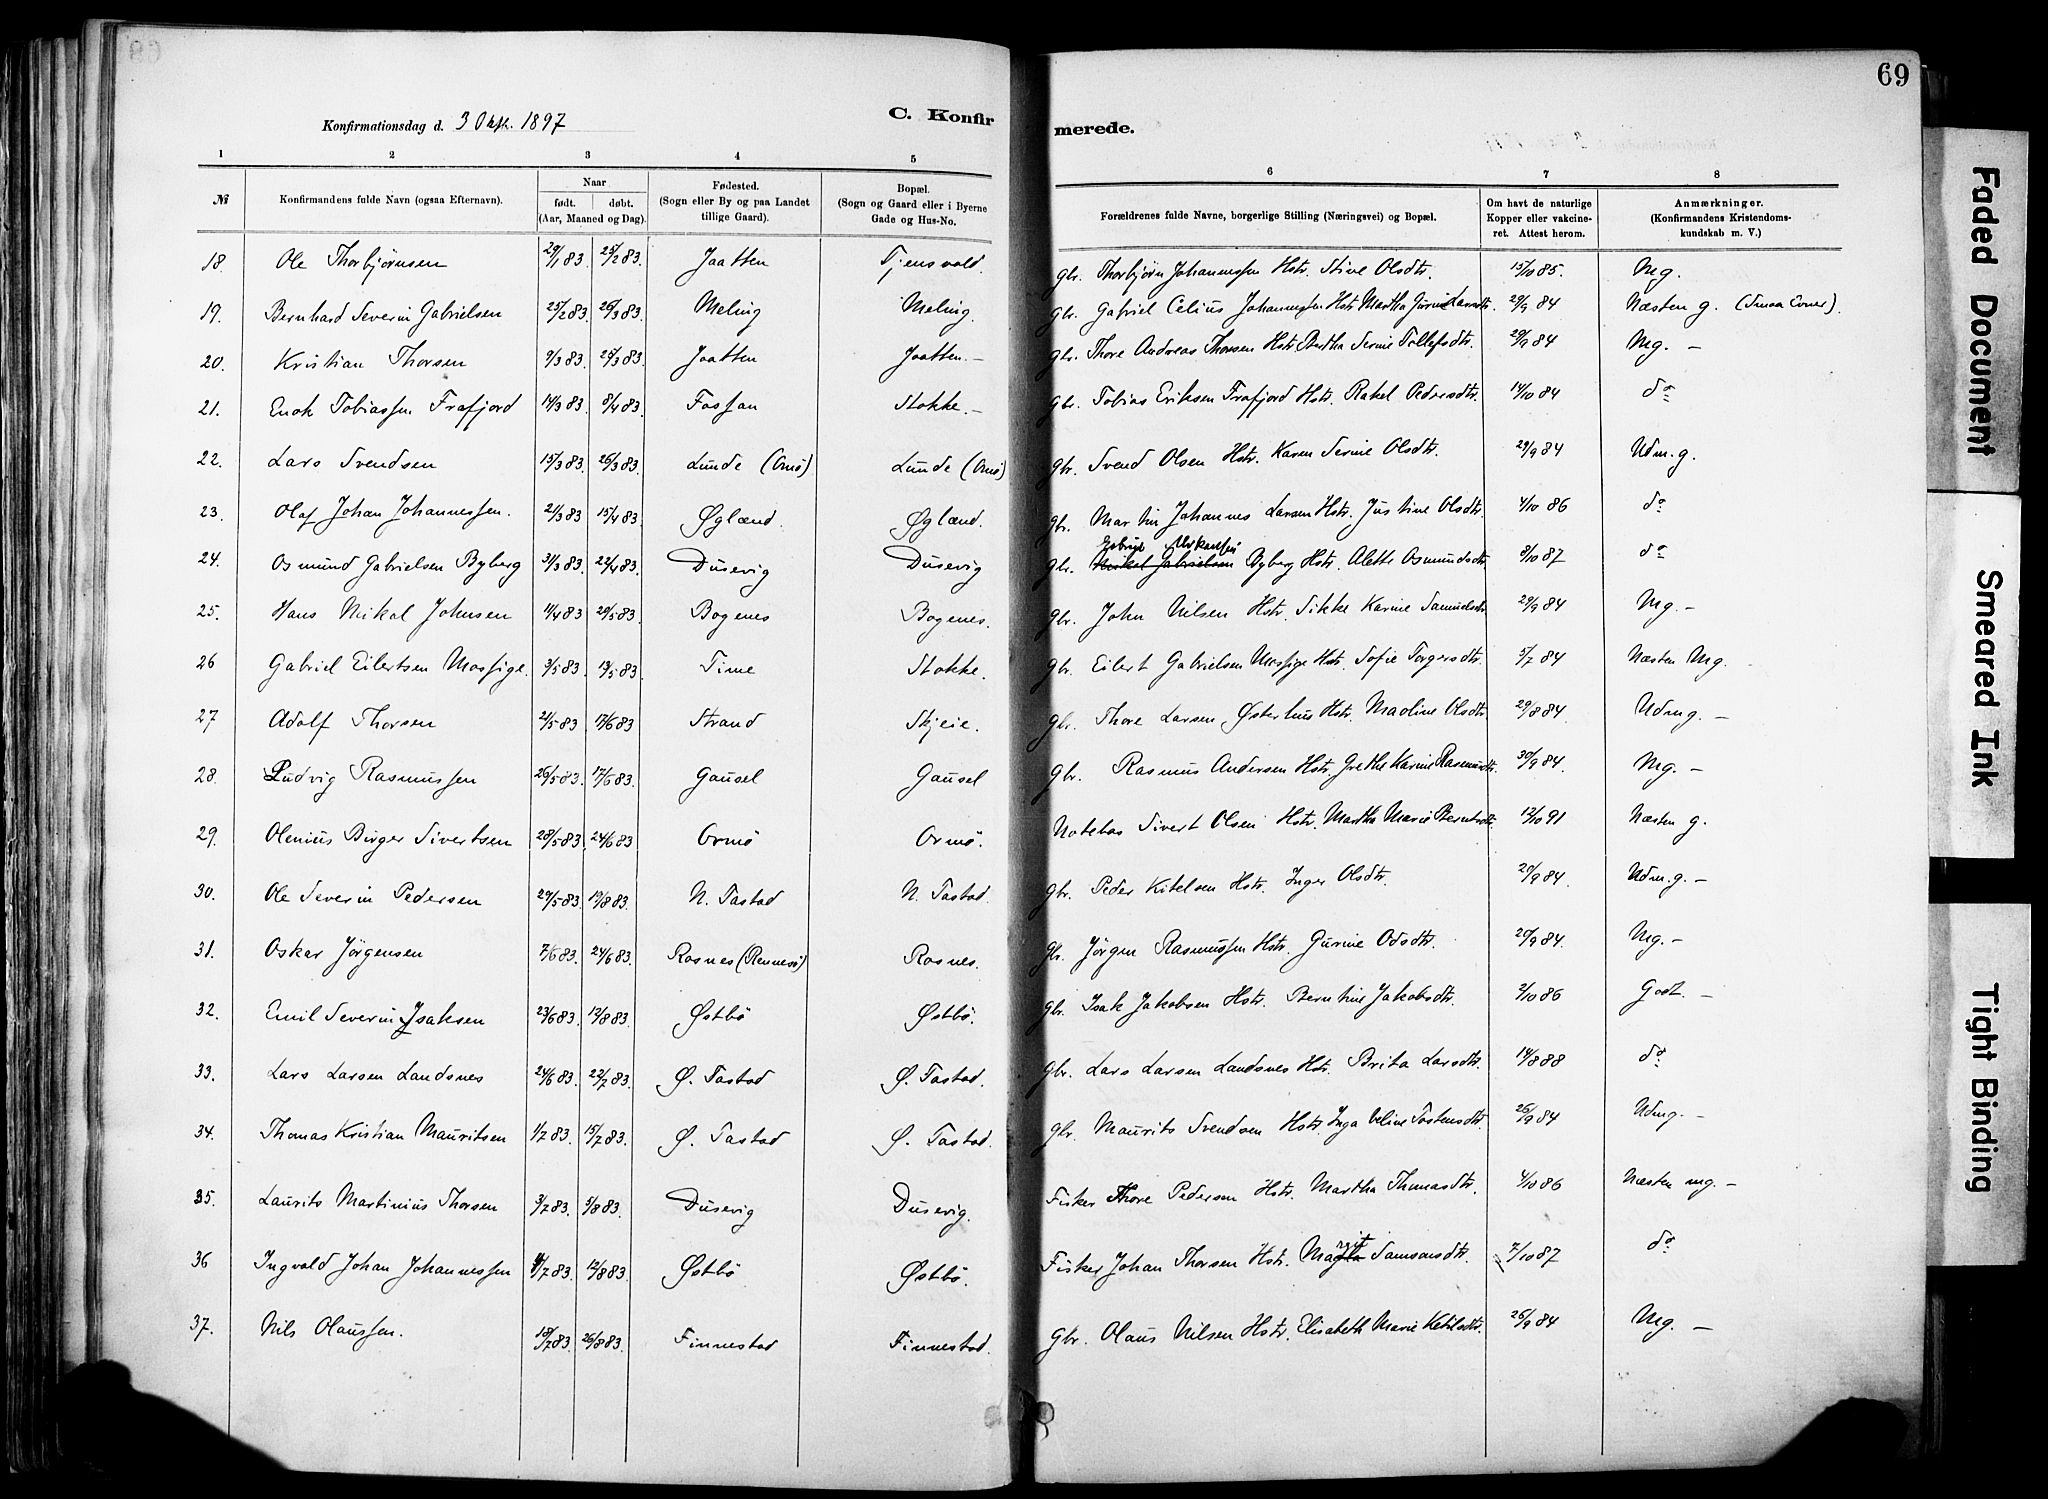 69
Konfirmationsdag d. 3 Okt. 1897
C. Konfir merede.
1 2 3 4 5 6 7 8
№ Konfirmandens fulde Navn (ogsaa Efternavn). Naar født. døbt. (Aar, Maaned og Dag). Fødested. (Sogn eller By og paa Landet tillige Gaard). Bopæl. (Sogn og Gaard eller i Byerne Gade og Hus-No. Forældrenes fulde Navne, borgerlige Stilling (Næringsvei) og Bopæl. Om havt de naturlige Kopper eller vakcineret. Attest herom. Anmærkninger. (Konfirmandens Kristendomskundskab m. V.)
18. Ole Thorbjørnsen 29/1 83. 25/2 83. Jaatten Tjensvold. Gbr. Thorbjørn Johannessen Hstr. Stine Olsdtr. 15/10 85. Mg.
19. Bernhard Severin Gabrielsen 25/2 83. 26/3 83. Meling Meling. Gbr. Gabriel Celius Johannessen Hstr. Martha Jurine Larsdtr. 29/9 84 Næsten g. (Smaa Evner).
20. Kristian Thorsen 9/3 83. 25/3 83. Jaatten Jaatten. — Gbr. Thore Andreas Thorsen Hstr. Bertha Serine Tollefsdtr. 29/9 84 Mg. —
21. Enok Tobiassen Frafjord 14/3 83. 8/4 83. Fossan Stokke. — Gbr. Tobias Eriksen Frafjord Hstr. Rakel Pedersdtr. 14/10 84 do
22. Lars Svendsen 15/3 83. 26/3 83. Lunde (Omø) Lunde (Omø) Gbr. Svend Olsen Hstr. Karen Serine Olsdtr. 29/9 84 Udm. g.
23. Olaf Johan Johannessen. 21/3 83 15/4 83. Øglænd. Øglænd. Gbr. Martin Johannes Larsen Hstr. Justine Olsdtr. 4/10 86 do
24. Osmund Gabrielsen Byberg 31/3 83. 22/4 83. Dusevig Dusevig Gbr. Mikal Gabrielsen Byberg Hstr. Alette Osmundsdtr. 8/10 87 do
25. Hans Mikal Johnsen 11/4 83 20/5 83. Bogenes Bogenes. Gbr. John Nilsen Hstr. Sikke Karine Samuelsdtr. 29/9 84 Mg. —
26 Gabriel Eilertsen Mossige. 3/5 83. 13/5 83. Time Stokke. Gbr. Eilert Gabrielsen Mossige Hstr. Sofie Torgersdtr. 5/7 84 Næsten Mg.
27 Adolf Thorsen 2/5 83. 17/6 83 Strand Skjeie. Gbr. Thore Larsen Østerhus Hstr. Maline Olsdtr. 29/8 84. Udmg. —
28. Ludvig Rasmussen 26/5 83. 17/6 83. Gausel Gausel Gbr. Rasmus Andersen Hstr. Grethe Karine Rasmusdtr. 30/9 84. Mg. —
29. Olenius Birger Sivertsen 28/5 83. 24/6 83 Ormø Ormø. Sivert Olsen Hstr. Martha Marie Berntsdtr. 12/10 91 Næsten g.
30. Ole Severin Pedersen 29/5 83. 19/8 83. N. Tastad N. Tastad. Gbr. Peder Kitelsen Hstr. Inger Olsdtr. 29/9 84. Udm. g. —
31. Oskar Jørgensen 7/6 83. 24/6 83. Rosnes (Rennesø) Rosnes. Gbr. Jørgen Rasmussen Hstr. Gurine Odsdtr. 29/9 84. Mg. —
32. Emil Severin Isaksen 23/6 83. 12/8 83. Østbø Østbø. Gbr. Isak Jakobsen Hstr. Berntine Jakobsdtr. 2/10 86 Godt. —
33. Lars Larsen Landsnes 24/6 83. 22/7 83. Ø. Tastad Ø. Tastad. Gbr. Lars Larsen Landsnes Hstr. Brita Larsdtr. 14/8 88 do
34. Thomas Kristian Mauritsen 1/7 83. 15/7 83. Ø. Tastad Ø. Tastad. Gbr. Maurits Svendsen Hstr. Inga Tostensdtr. 26/9 84 Udmg. —
35. Laurits Martinius Thorsen 3/7 83. 5/8 83. Dusevig Dusevig. Fisker Thore Pedersen Hstr. Martha Thomasdtr. 4/10 86 Næsten mg. —
36 Ingvald Johan Johannessen /7 83. 12/8 83. Østbø Østbø. Fisker Johan Thorsen Hstr. Samsonsdtr. 7/10 87 do
37. Nils Olaussen. 18/7 83. 26/8 83. Finnestad Finnestad. Gbr. Olaus Nilsen Hstr. Elisabeth Marie Ketilsdtr. 26/9 84 Mg. —
Faded Document
Smeared Ink
Tight Binding